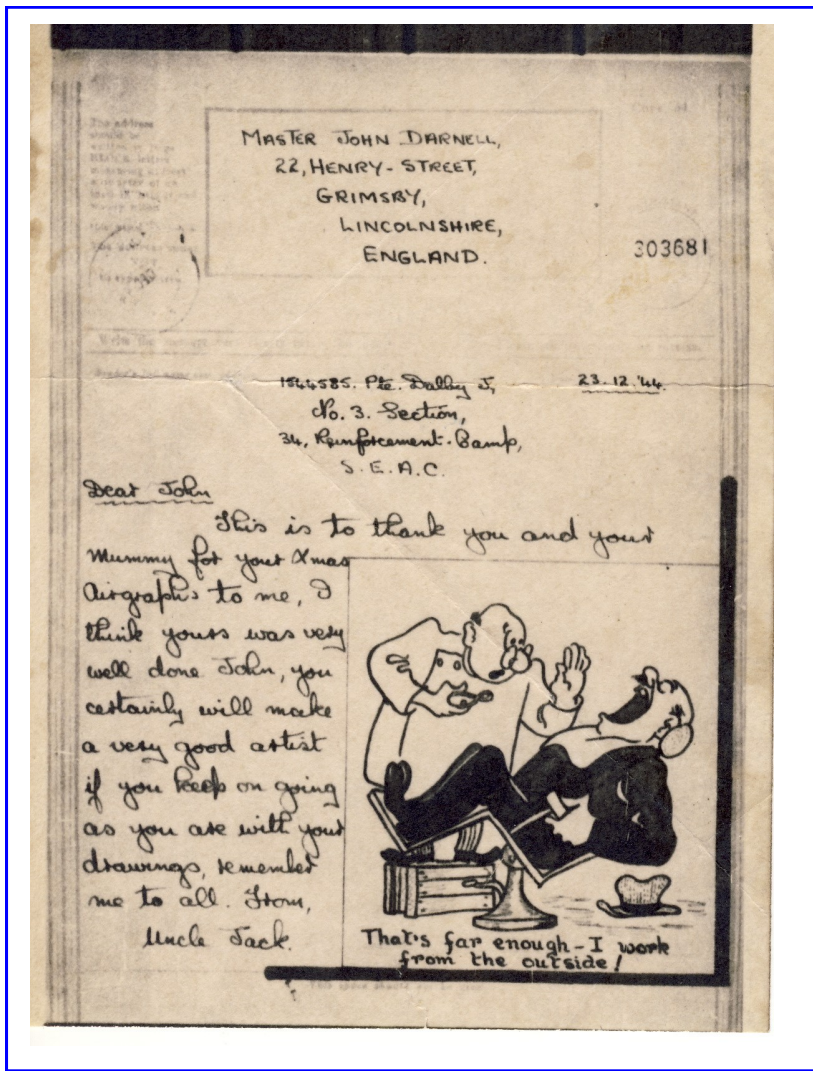 The address
MASTER JOHN DARNELL,
22, HENRY-STREET,
GRIMSBY,
LINCOLNSHIRE,
ENGLAND.
303681
1544585. Pte. Dalby J,
No. 3. Section,
34, Reinforcement-Camp,
S.E.A.C.
23.12.'44.
Dear John
This is to thank you and your
Mummy for your Xmas
Airgraphs to me, I
think yours was very
well done John, you
certainly will make
a very good artist
if you keep on going
as you are with your
drawings, remember
me to all. From,
Uncle Jack.
That's far enough - I work
from the outside!